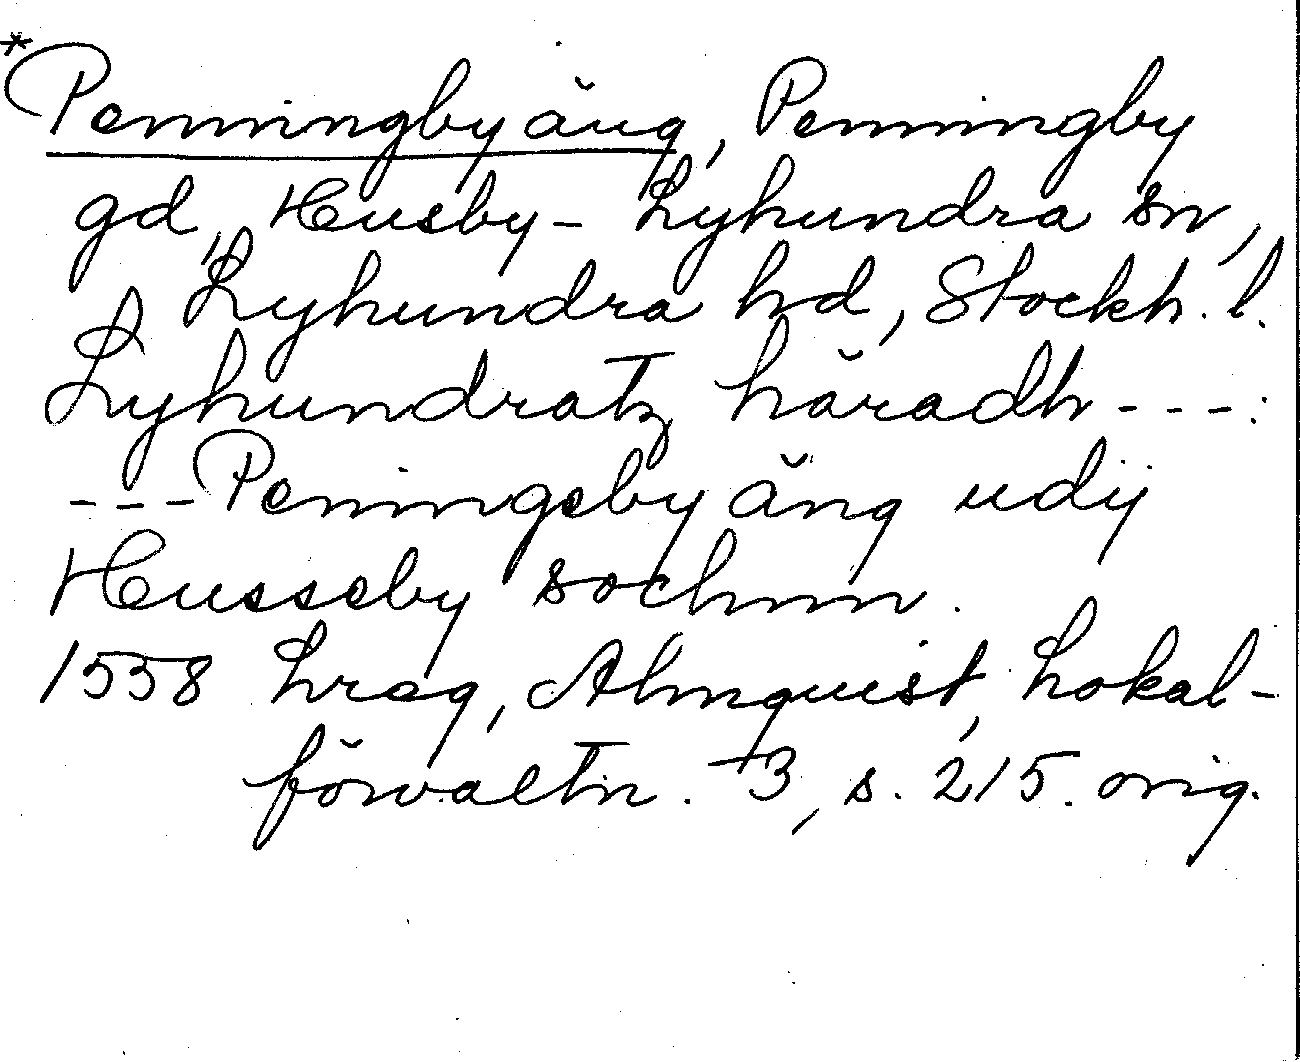 *Penningby äng, Penningby
gd, Husby-Lyhundra sn,
Lyhundra hd, Stockh. l.
Lyhundratz häradh - - - :
- - - Peningeby äng udij
Husseby sochnn.
1558 Lreg, Almquist, Lokal-
förvaltn. 3, s. 215. orig.